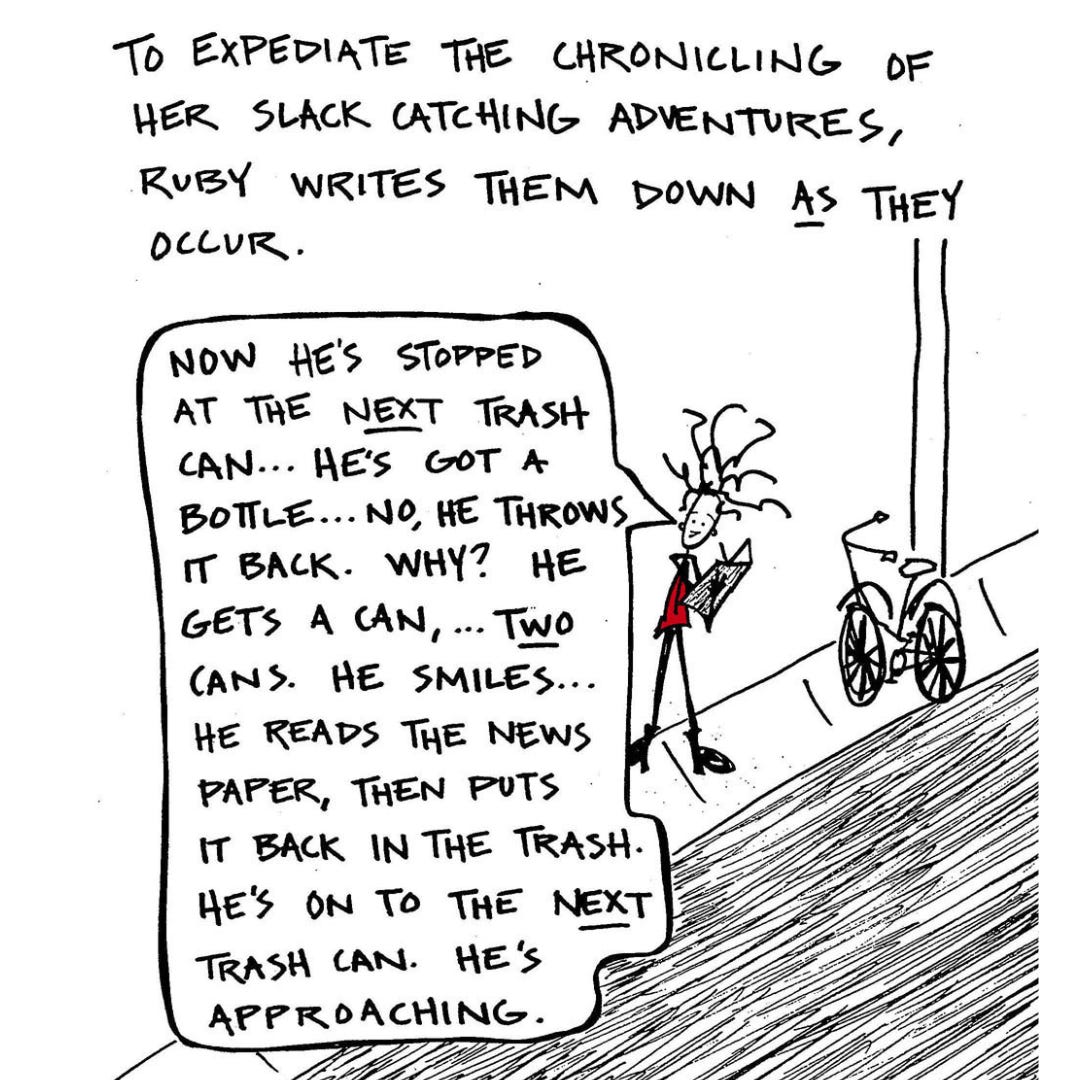 TO EXPEDIATE THE CHRONICLING OF
HER SLACK CATCHING ADVENTURES,
RUBY WRITES THEM DOWN AS THEY
OCCUR.
NOW HE'S STOPPED
AT THE NEXT TRASH
CAN... HE'S GOT A
BOTTLE... NO, HE THROWS
IT BACK. WHY? HE
GETS A CAN, ... TWO
CANS. HE SMILES...
HE READS THE NEWS
PAPER, THEN PUTS
IT BACK IN THE TRASH.
HE'S ON TO THE NEXT
TRASH CAN. HE'S
APPROACHING.